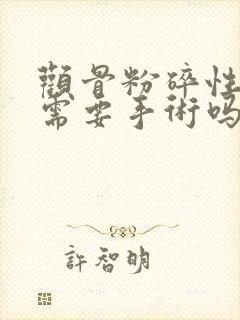 顴骨粉碎性
需要手術吗
許智明